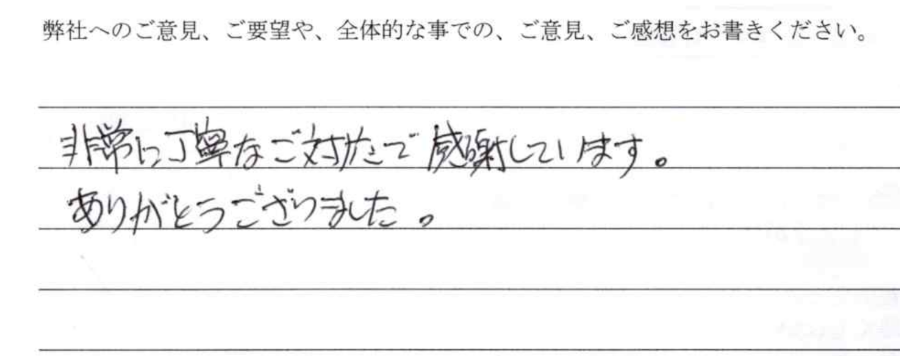 弊社へのご意見、ご要望や、全体的な事での、ご意見、ご感想をお書きください。
非常に丁寧なご対応で感謝しています。
ありがとうございました。